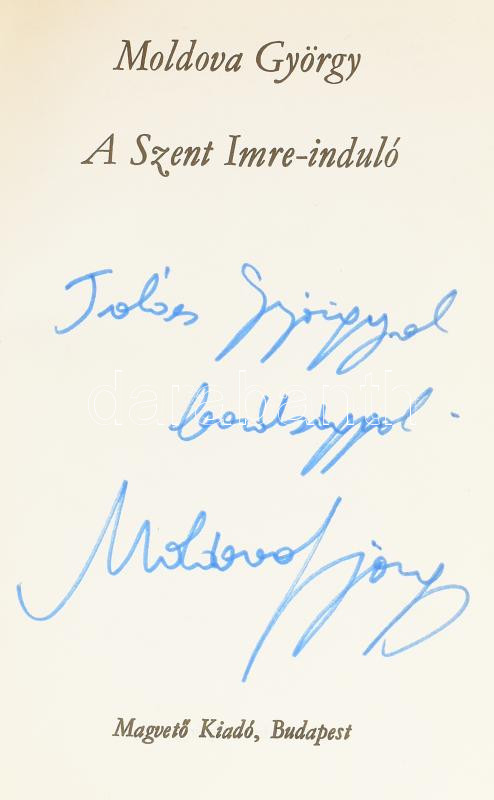 Moldova György
A Szent Imre-induló
György
barátsággal
darabanth
Moldova György
Magvető Kiadó, Budapest